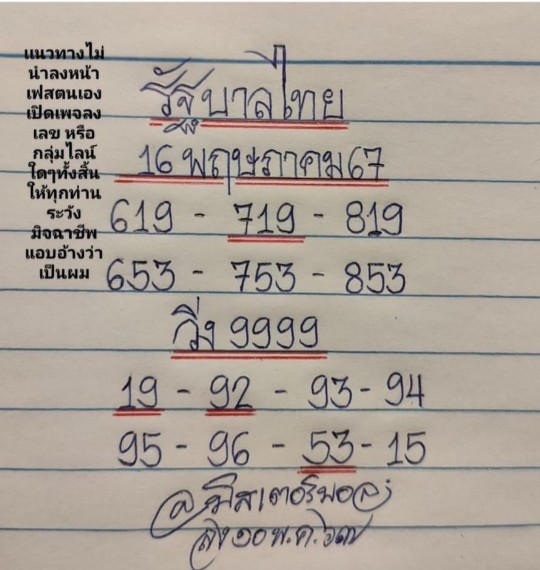 แนวทางไม่
นำลงหน้า
เฟสตนเอง
เปิดเพจลง
เลข หรือ
กลุ่มไลน์
ใดๆทั้งสิ้น
ให้ทุกท่าน
ระวัง
มิจฉาชีพ
แอบอ้างว่า
เป็นผม
รัฐบาลไทย
16 พฤษภาคม67
619 - 719 - 819
653 - 753 - 853
วิ่ง 9999
19 - 92 - 93 - 94
95 - 96 - 53 - 15
@มิสเตอร์บอล
ลง๑๐พ.ค.๖๗